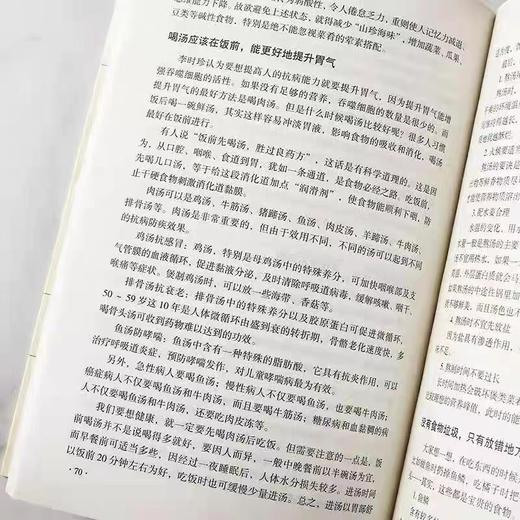 性食物，令人倦怠乏力，重则使人记忆力减退、
能力下降。故欲避免上述状态，就得减少“山珍海味”，增加蔬菜、瓜果、
豆类等碱性食物，特别是绝不能忽视菜肴的荤素搭配。
喝汤应该在饭前，能更好地提升胃气
李时珍认为要想提高人的抗病能力就要提升胃气，因为提升胃气能增
强吞噬细胞的活性。如果没有足够的营养，吞噬细胞的数量是很少的。而
提升胃气的最好方法是喝肉汤。但是什么时候喝汤比较好呢？很多人习惯
饭后喝一碗鲜汤，其实这样容易冲淡胃液，影响食物的吸收和消化，喝汤
最好在饭前进行。
有人说“饭前先喝汤，胜过良药方”，这话是有科学道理的。这是因
为，从口腔、咽喉、食道到胃，犹如一条通道，是食物必经之路。吃饭前，
先喝几口汤，等于给这段消化道加点“润滑剂”，使食物能顺利下咽，防
止干硬食物刺激消化道黏膜。
肉汤可以是鸡汤、牛筋汤、猪蹄汤、鱼汤、肉皮汤、羊蹄汤、牛肉汤、
排骨汤等。肉汤是非常重要的，但由于效用不同，不同的汤可以起到不同
的抗病防疾效果。
鸡汤抗感冒：鸡汤，特别是母鸡汤中的特殊养分，可加快咽喉部及支
气管膜的血液循环，促进黏液分泌，及时清除呼吸道病毒，缓解咳嗽、咽干、
喉痛等症状。煲制鸡汤时，可以放一些海带、香菇等。
排骨汤抗衰老：排骨汤中的特殊养分以及胶原蛋白可促进微循环，
50 ~ 59岁这10年是人体微循环由盛到衰的转折期，骨骼老化速度快，多
喝骨头汤可收到药物难以达到的功效。
鱼汤防哮喘：鱼汤中含有一种特殊的脂肪酸，它具有抗炎作用，可以
治疗呼吸道炎症，预防哮喘发作，对儿童哮喘病最为有效。
另外，急性病人要喝鱼汤；慢性病人不仅要喝鱼汤，也要喝牛肉汤；
癌症病人不仅要喝鱼汤和牛肉汤，而且要喝牛筋汤；糖尿病和血黏稠的病
人不仅要喝鱼汤和牛肉汤，还要吃肉皮冻等。
我们要想健康，就一定要先喝肉汤后吃饭。但需要注意的一点是，饭
前喝汤并不是说喝得多就好，要因人而异，一般中晚餐前以半碗汤为宜，
而早餐前可适当多些，因经过一夜睡眠后，人体水分损失较多。进汤时间
以饭前20分钟左右为好，吃饭时也可缓慢少量进汤。总之，进汤以胃部舒
·70·
2.火候要适当
3.配水要合理
4.熬汤时不宜先放盐
5.熬汤时间不要过长
没有食物垃圾，只有放错地方
大家想一想，在吃东西的时候
1.鱼鳞